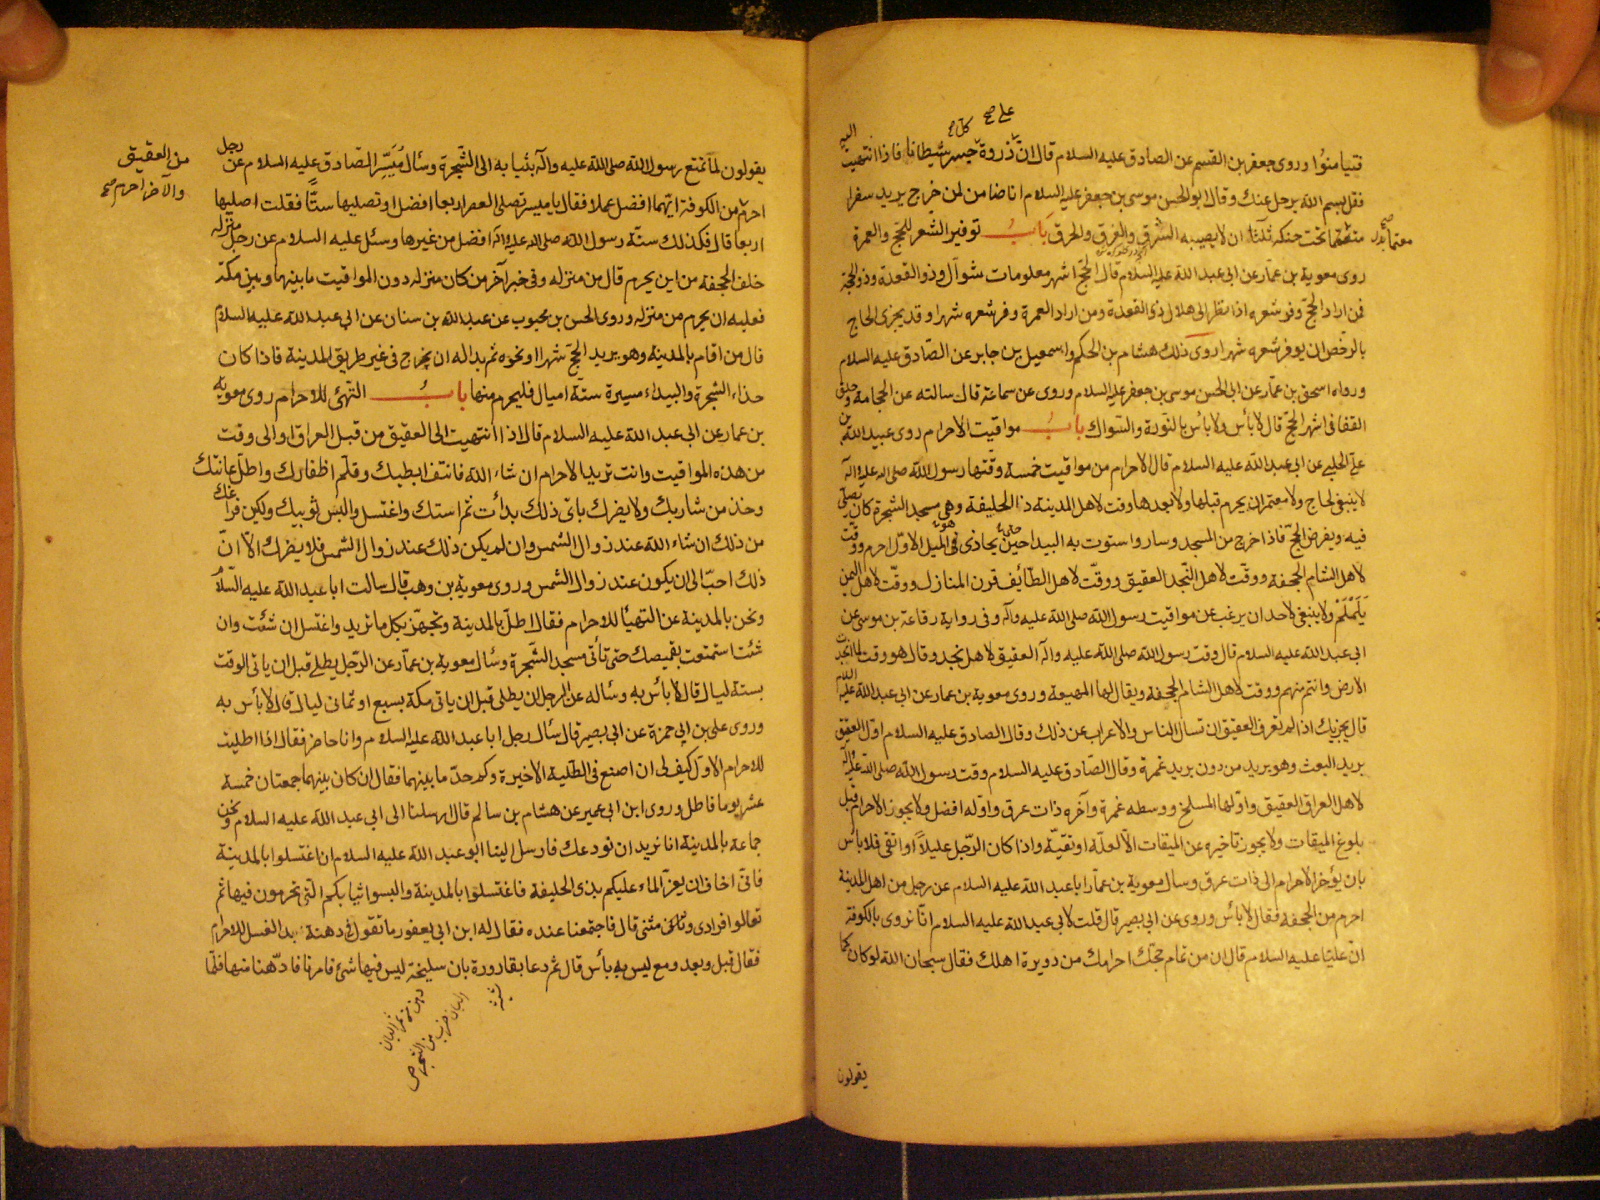 على صح
كل صح
فتيامنوا وروى جعفر بن القسم عن الصادق عليه السلام قال ان ذروة جسر شيطانا فاذا انتهيت اليه
فقل بسم الله يرحل عنك وقال ابو الحسن موسى بن جعفر عليه السلام انا ضامن لمن خرج يريد سفرا
معتما تحت حنكه ثلثا ان لا يصيبه السرق والغرق والحرق باب توفير الشعر للحج والعمرة
روى معوية بن عمار عن ابى عبد الله عليه السلام قال الحج اشهر معلومات شوال وذو القعدة وذو الحجة
فمن اراد الحج وفر شعره اذا نظر الى هلال ذى القعدة ومن اراد العمرة وفر شعره شهرا وقد يجزى الحاج
بالرخص ان يوفر شعره شهرا روى ذلك هشام بن الحكم واسمعيل بن جابر عن الصادق عليه السلام
ورواه اسحق بن عمار عن ابى الحسن موسى بن جعفر عليه السلام وروى عن سماعة قال سالته عن الحجامة وحلق
القفا فى اشهر الحج قال لا بأس ولا بأس بالنورة والسواك باب مواقيت الاحرام روى عبيد الله بن
على الحلبى عن ابى عبد الله عليه السلام قال الاحرام من مواقيت خمسة وقتها رسول الله صلى الله عليه وآله
لا ينبغى لحاج ولا معتمر ان يحرم قبلها ولا بعدها وقت لاهل المدينة ذا الحليفة وهى مسجد الشجرة كان يصلى
فيه ويفرض الحج فاذا خرج من المسجد وسار واستوت به البيدا حين يحاذى الميل الاول احرم ووقت
لاهل الشام الجحفة ووقت لاهل النجد العقيق ووقت لاهل الطائف قرن المنازل ووقت لاهل اليمن
يلملم ولا ينبغى لاحد ان يرغب عن مواقيت رسول الله صلى الله عليه وآله وفى رواية رفاعة بن موسى عن
ابى عبد الله عليه السلام قال وقت رسول الله صلى الله عليه وآله العقيق لاهل نجد وقال هو وقت لما انجدت
الارض وانتم منهم ووقت لاهل الشام الجحفة ويقال لها المهيعة وروى معوية بن عمار عن ابى عبد الله عليه السلام
قال يجزيك اذا لم تعرف العقيق ان تسال الناس والاعراب عن ذلك وقال الصادق عليه السلام اول العقيق
بريد البعث وهو بريد من دون بريد غمرة وقال الصادق عليه السلام وقت رسول الله صلى الله عليه وآله
لاهل العراق العقيق واولها المسلخ ووسطه غمرة وآخره ذات عرق واوله افضل ولا يجوز الاحرام قبل
بلوغ الميقات ولا يجوز تاخيره عن الميقات الا لعلة او تقية واذا كان الرجل عليلا او اتقى فلا بأس
بان يؤخر الاحرام الى ذات عرق وسأل معوية بن عمار ابا عبد الله عليه السلام عن رجل من اهل المدينة
احرم من الجحفة فقال لا بأس وروى عن ابى بصير قال قلت لابى عبد الله عليه السلام انا نروى بالكوفة
ان عليا عليه السلام قال ان من تمام حجك احرامك من دويرة اهلك فقال سبحان الله لو كان كما
يقولون
يقولون لما تمتع رسول الله صلى الله عليه وآله بثيابه الى الشجرة وسأل ميسر الصادق عليه السلام عن رجل
من العقيق
والآخر احرم صح
احرم من الكوفة ايهما افضل عملا فقال يا ميسر تصلى العصر اربعا افضل او تصليها ستا فقلت اصليها
اربعا قال فكذلك سنة رسول الله صلى الله عليه وآله افضل من غيرها وسئل عليه السلام عن رجل منزله
خلف الجحفة من اين يحرم قال من منزله وفى خبر آخر من كان منزله دون المواقيت ما بينها وبين مكة
فعليه ان يحرم من منزله وروى الحسن بن محبوب عن عبد الله بن سنان عن ابى عبد الله عليه السلام
قال من اقام بالمدينة وهو يريد الحج شهرا او نحوه ثم بدا له ان يخرج فى غير طريق المدينة فاذا كان
حذاء الشجرة والبيداء مسيرة ستة اميال فليحرم منها باب التهيئ للاحرام روى معوية
بن عمار عن ابى عبد الله عليه السلام قال اذا انتهيت الى العقيق من قبل العراق او الى وقت
من هذه المواقيت وانت تريد الاحرام ان شاء الله فانتف ابطيك وقلم اظفارك واطل عانتك
وخذ من شاربك ولا يضرك باى ذلك بدأت ثم استك واغتسل والبس ثوبيك وليكن فراغك
من ذلك ان شاء الله عند زوال الشمس وان لم يكن ذلك عند زوال الشمس فلا يضرك الا ان
ذلك احب الى ان يكون عند زوال الشمس وروى معوية بن وهب قال سالت ابا عبد الله عليه السلام
ونحن بالمدينة عن التهيأ للاحرام فقال اطل بالمدينة وتجهز بكل ما تريد واغتسل ان شئت وان
شئت استمتعت بقميصك حتى تأتى مسجد الشجرة وسأل معوية بن عمار عن الرجل يطلى قبل ان ياتى الوقت
بستة ليال قال لا بأس به وسأله عن الرجل ان يطلى قبل ان ياتى مكة بسبع او ثمانى ليال قال لا بأس به
وروى على بن ابى حمزة عن ابى بصير قال سأل رجل ابا عبد الله عليه السلام وانا حاضر فقال اذا اطليت
للاحرام الاول كيف لى ان اصنع فى الطلية الاخيرة وكم حد ما بينهما فقال ان كان بينهما جمعتان خمسة
عشر يوما فاطل وروى ابن ابى عمير عن هشام بن سالم قال ارسلنا الى ابى عبد الله عليه السلام ونحن
جماعة بالمدينة انا نريد ان نودعك فارسل الينا ابو عبد الله عليه السلام ان اغتسلوا بالمدينة
فانى اخاف ان يعز الماء عليكم بذى الحليفة فاغتسلوا بالمدينة والبسوا ثيابكم التى تحرمون فيها ثم
تعالوا فرادى ومثنى قال فاجتمعنا عنده فقال له ابن ابى يعفور ما تقول فى دهنة بعد الغسل للاحرام
فقال قبل وبعد ومع ليس به بأس قال ثم دعا بقارورة بان سليخة ليس فيها شئ فامرنا فادهنا منها فلما